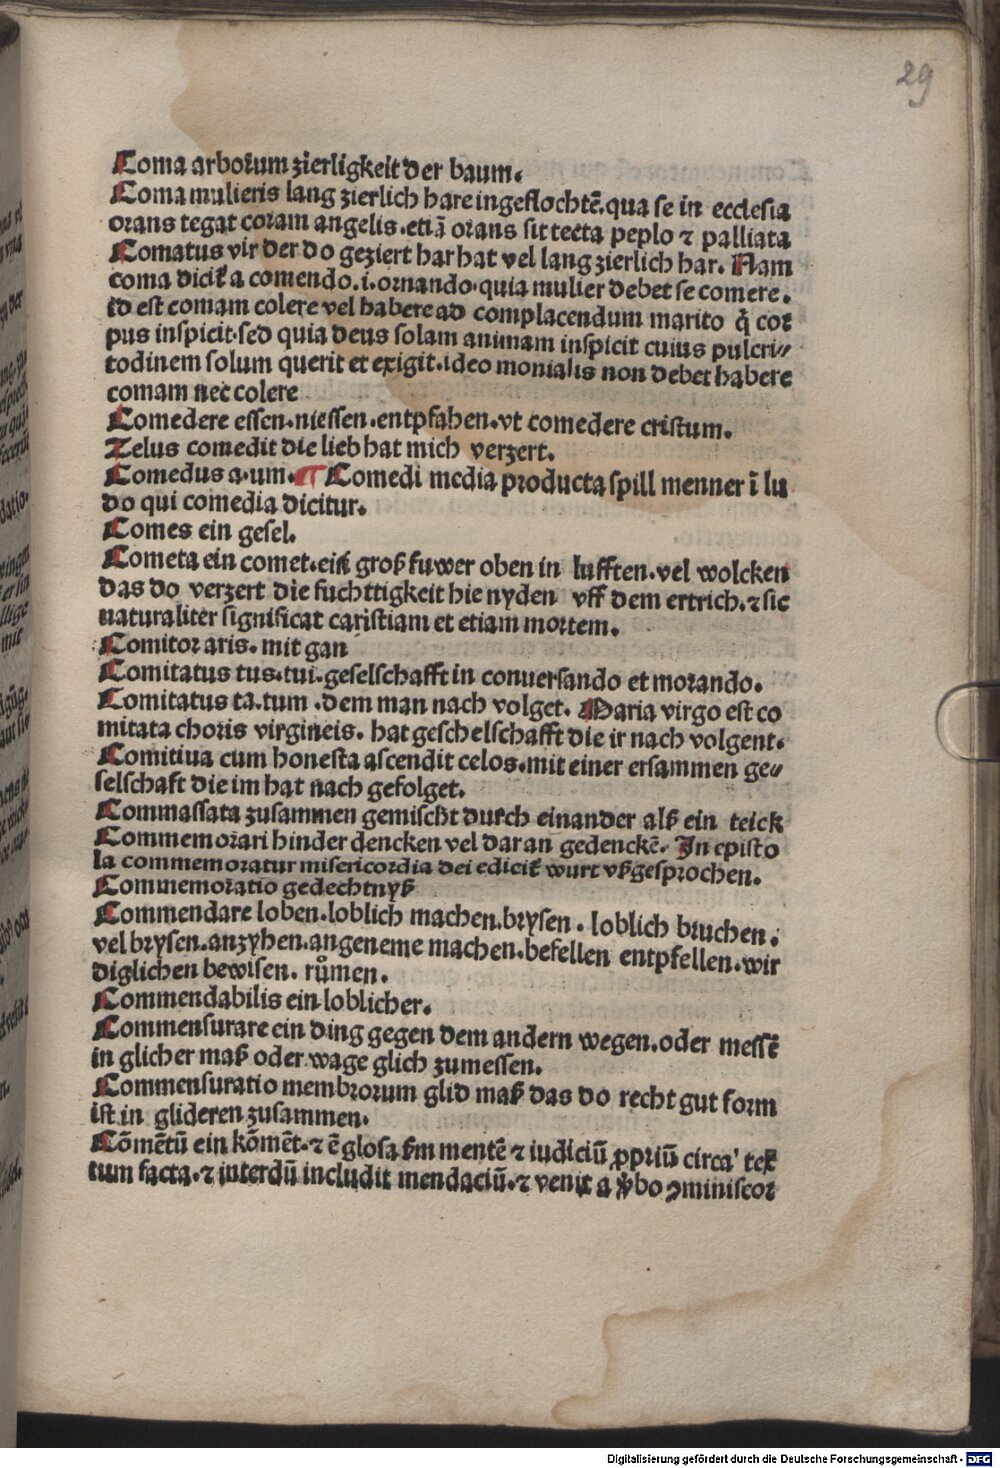 29
Coma arborum zierligkeit der baum.
Coma mulieris lang zierlich hare ingeflochtē.qua se in ecclesia
orans tegat coram angelis.etiā orans sit tecta peplo ⁊ palliata
Comatus vir der do geziert har hat vel lang zierlich har. Nam
coma dicit᷑ a comendo.i.ornando.quia mulier debet se comere.
id est comam colere vel habere ad complacendum marito q̄ cor
pus inspicit.sed quia deus solam animam inspicit cuius pulcri⸗
todinem solum querit et exigit.ideo monialis non debet habere
comam nec colere
Comedere essen.niessen.entpfahen.vt comedere cristum.
Zelus comedit die lieb hat mich verzert.
Comedus a.um. ¶ Comedi media producta spill menner ī lu
do qui comedia dicitur.
Comes ein gesel.
Cometa ein comet.ein groß fuwer oben in lufften.vel wolcken
das do verzert die fuchttigkeit hie nyden vff dem ertrich.⁊ sic
naturaliter significat caristiam et etiam mortem.
Comitor aris. mit gan
Comitatus tus.tui.geselschafft in conuersando et morando.
Comitatus ta.tum .dem man nach volget. Maria virgo est co
mitata choris virgineis. hat geschelschafft die ir nach volgent.
Comitiua cum honesta ascendit celos.mit einer ersammen ge⸗
selschaft die im hat nach gefolget.
Commassata zusammen gemischt durch einander alß ein teick
Commemorari hinder dencken vel daran gedenckē. In episto
la commemoratur misericordia dei edicit᷑ wurt vßgesprochen.
Commemoratio gedechtnyß
Commendare loben.loblich machen.brysen . loblich bruchen.
vel brysen.anzyhen.angeneme machen.befellen entpfellen.wir
diglichen bewisen. růmen.
Commendabilis ein loblicher.
Commensurare ein ding gegen dem andern wegen.oder messē
in glicher maß oder wage glich zumessen.
Commensuratio membrorum glid maß das do recht gut form
ist in glideren zusammen.
Cōmētū ein kōmēt.⁊ ē glosa ẜm mentē ⁊ iudiciū ꝓpriū circa tex
tum facta.⁊ interdū includit mendaciū.⁊ venit a ꝟbo ꝯminiscor
Digitalisierung gefördert durch die Deutsche Forschungsgemeinschaft - DFG